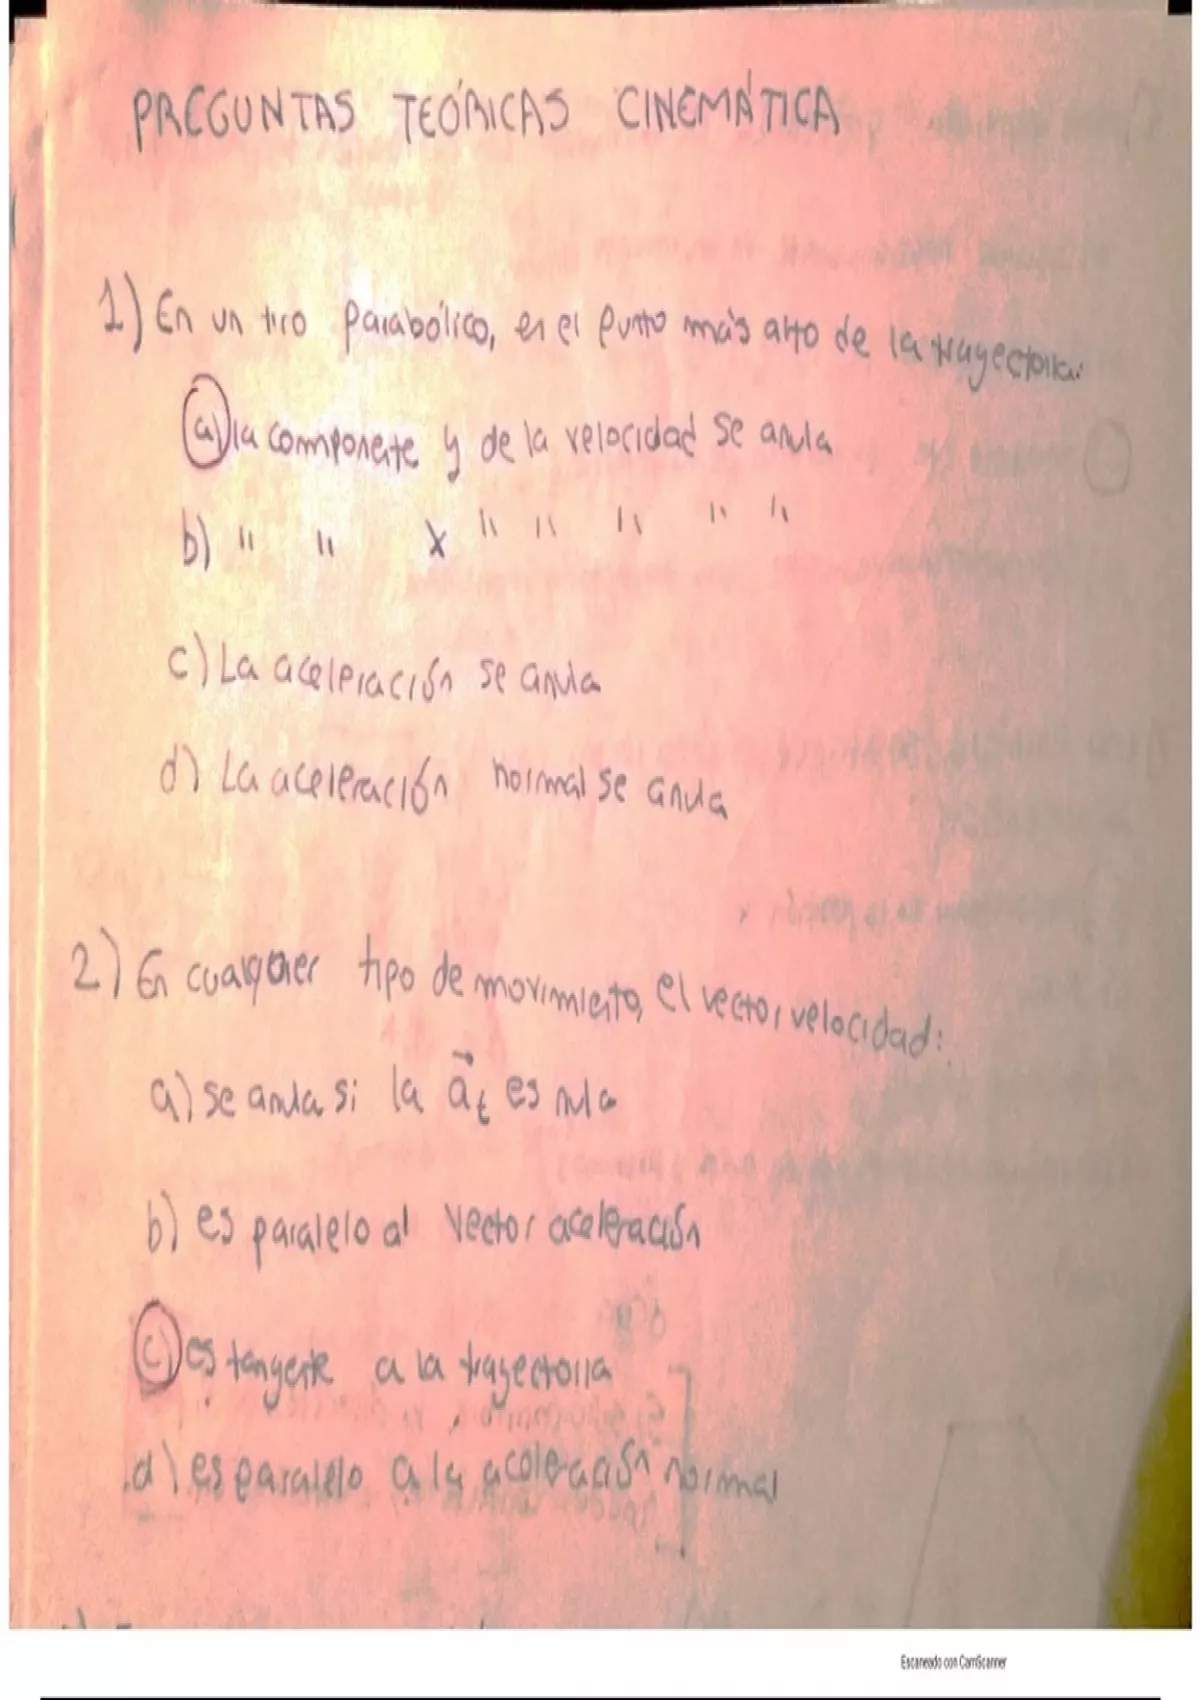 PREGUNTAS TEÓRICAS CINEMÁTICA
1) En un tiro parabólico, en el punto más alto de la trayectoria:
a) la componente y de la velocidad se anula
b) " " x " " " " "
c) La aceleración se anula
d) La aceleración normal se anula
2) En cualquier tipo de movimiento, el vector velocidad:
a) se anula si la a⃗t es nula
b) es paralelo al vector aceleración
c) es tangente a la trayectoria
d) es paralelo a la aceleración normal
Escaneado con CamScanner